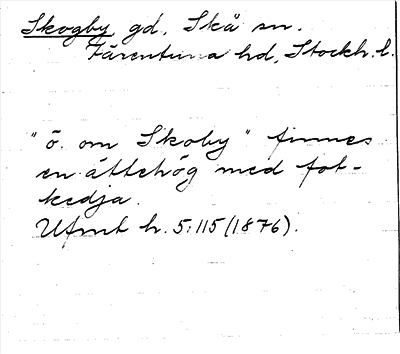 Skogby gd, Skå sn.
Färentuna hd, Stockh. l.
"ö. om Skoby" finnes
en ättehög med fot-
kedja.
Ufmt h. 5:115 (1876).